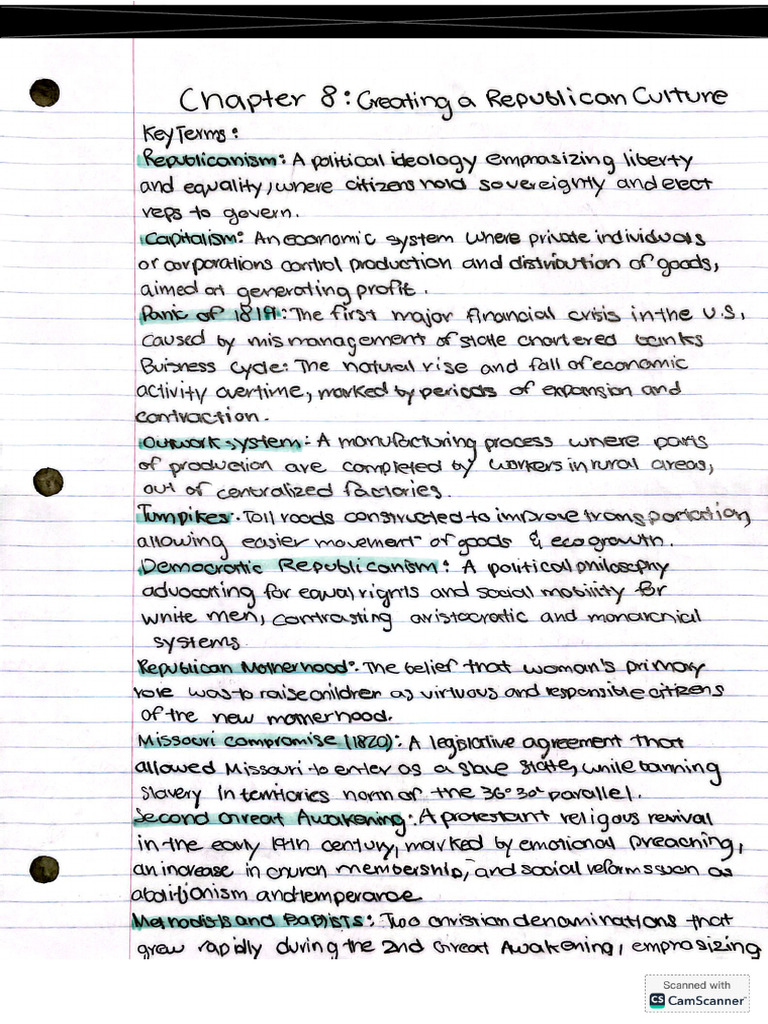 Chapter 8: Creating a Republican Culture
Key Terms:
Republicanism: A political ideology emphasizing liberty
and equality, where citizens hold sovereignty and elect
reps to govern.
Capitalism: An economic system where private individuals
or corporations control production and distribution of goods,
aimed at generating profit.
Panic of 1819: The first major financial crisis in the U.S,
caused by mismanagement of state chartered banks
Buisness Cycle: The natural rise and fall of economic
activity overtime, marked by periods of expansion and
contraction.
Outwork system: A manufacturing process where parts
of production are completed by workers in rural areas,
out of centralized factories.
Turnpikes: Toll roads constructed to improve transportation
allowing easier movement of goods & eco growth.
Democratic Republicanism: A political philosophy
advocating for equal rights and social mobility for
white men, contrasting aristocratic and monarchial
systems.
Republican Motherhood: The belief that woman's primary
role was to raise children as virtuous and responsible citizens
of the new motherhood.
Missouri compromise (1820): A legislative agreement that
allowed Missouri to enter as a slave state, while banning
slavery in territories north of the 36°30' parallel.
Second Great Awakening: A protestant religous revival
in the early 19th century, marked by emotional preaching,
an increase in church membership, and social reforms such as
abolitionism and temperance
Methodists and Baptists: Two christian denominations that
grew rapidly during the 2nd Great Awakening, emphasizing
Scanned with
CS CamScanner